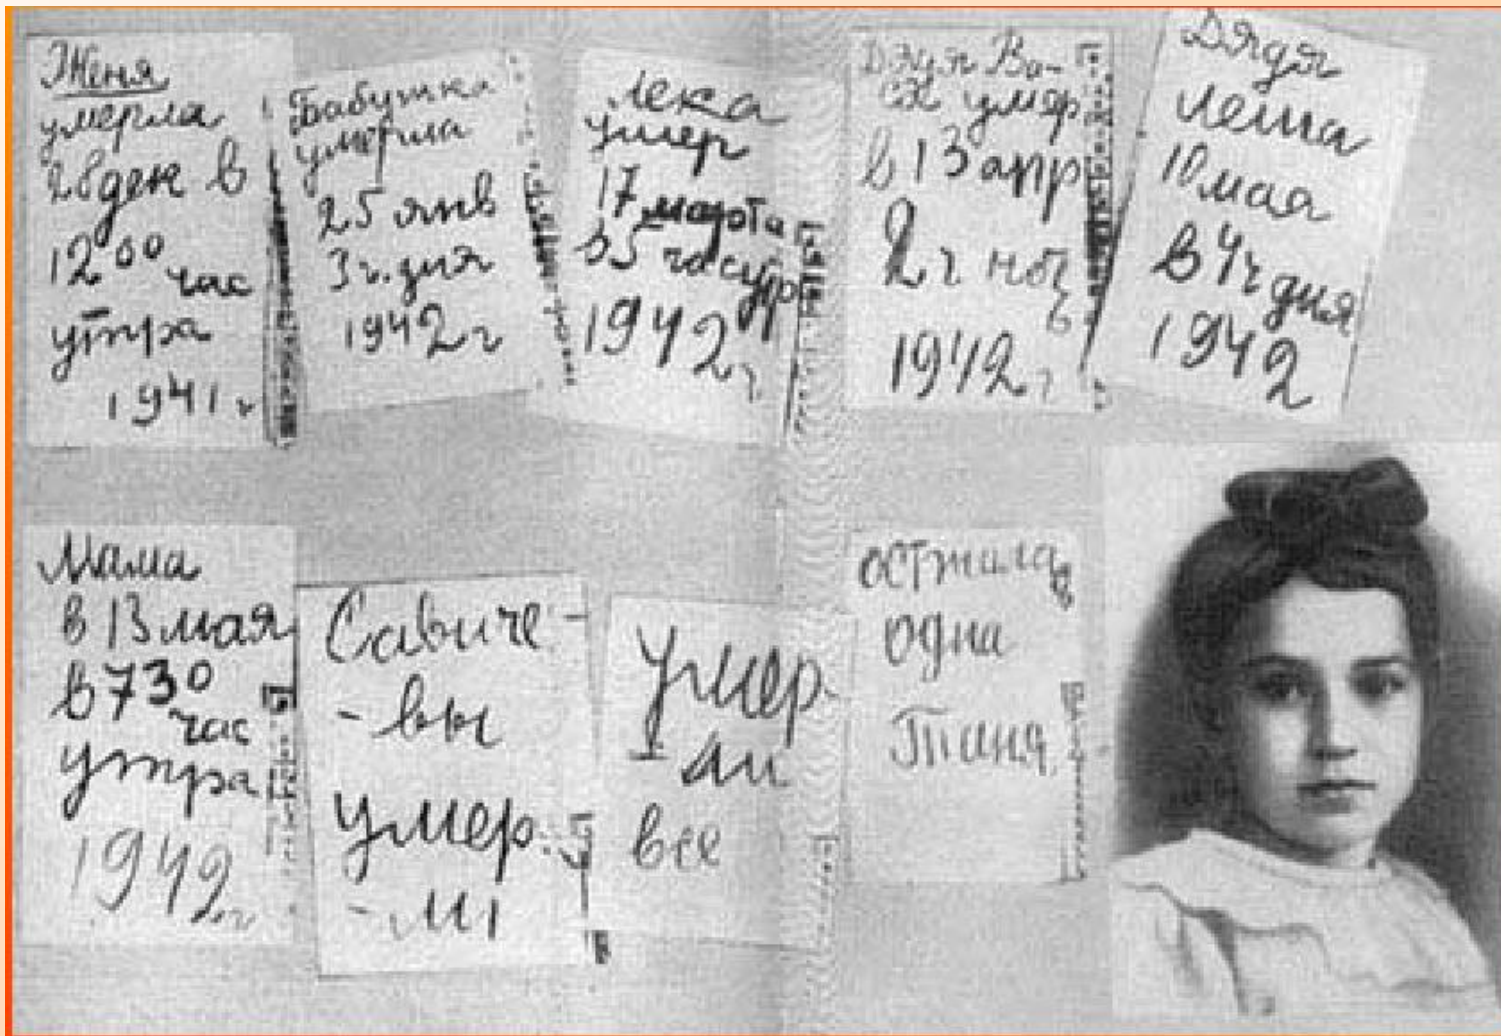 Женя
умерла
28 дек в
12 00 час
утра
1941 г
Бабушка
умерла
25 янв
3 ч. дня
1942 г
Лека
умер
17 марта
в 5 час утр
1942 г
Дядя Ва-
ся умер
в 13 апр
2 ч ноч
1942 г
Дядя
Леша
10 мая
в 4 ч дня
1942
Мама
в 13 мая
в 7 30
час
утра
1942 г
Савиче-
-вы
умер-
-ли
Умер-
ли
все
осталась
одна
Таня